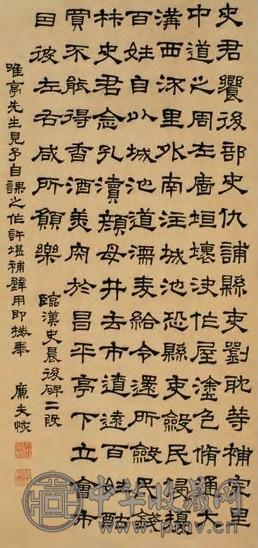 史君饗後部史仇誧縣吏劉耽等補完里
中道之周左廧垣壞決作屋塗色脩通大
溝西流里外南注城池恐縣吏斂民侵擾
百姓自以城池道濡麥給令還所斂民錢
材史君念孔瀆顏母井去市遼遠百姓酤
買不能得香酒美肉於昌平亭下立會市
因彼左右咸所願樂
臨漢史晨後碑二段
唯亭先生見予自課之作許堪補壁用即奉
廉夫恢
中华收藏网